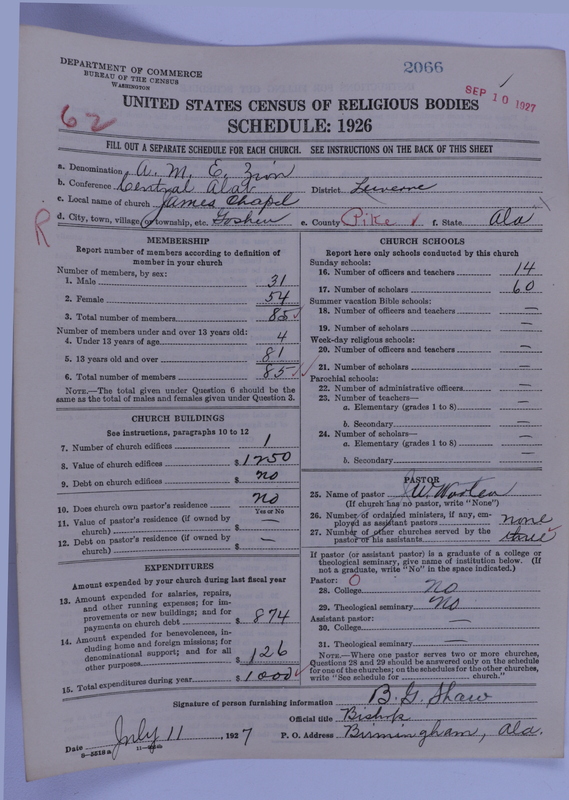 DEPARTMENT OF COMMERCE
BUREAU OF THE CENSUS
WASHINGTON
2066
SEP 10 1927
62
UNITED STATES CENSUS OF RELIGIOUS BODIES
SCHEDULE: 1926
FILL OUT A SEPARATE SCHEDULE FOR EACH CHURCH. SEE INSTRUCTIONS ON THE BACK OF THIS SHEET
a. Denomination A. M. E. Zion
b. Conference Central Ala. District Luverne
c. Local name of church James Chapel
d. City, town, village, or township, etc. Goshen e. County Pike f. State Ala
R
MEMBERSHIP
Report number of members according to definition of
member in your church
Number of members, by sex:
1. Male 31
2. Female 54
3. Total number of members 85
Number of members under and over 13 years old:
4. Under 13 years of age 4
5. 13 years old and over 81
6. Total number of members 85
NOTE.—The total given under Question 6 should be the
same as the total of males and females given under Question 3.
CHURCH BUILDINGS
See instructions, paragraphs 10 to 12
7. Number of church edifices 1
8. Value of church edifices $ 1250
9. Debt on church edifices $ no
10. Does church own pastor's residence no
Yes or No
11. Value of pastor's residence (if owned by
church) $ —
12. Debt on pastor's residence (if owned by
church) $ —
EXPENDITURES
Amount expended by your church during last fiscal year
13. Amount expended for salaries, repairs,
and other running expenses; for im-
provements or new buildings; and for
payments on church debt $ 874
14. Amount expended for benevolences, in-
cluding home and foreign missions; for
denominational support; and for all
other purposes $ 126
15. Total expenditures during year $ 1000
CHURCH SCHOOLS
Report here only schools conducted by this church
Sunday schools:
16. Number of officers and teachers 14
17. Number of scholars 60
Summer vacation Bible schools:
18. Number of officers and teachers —
19. Number of scholars —
Week-day religious schools:
20. Number of officers and teachers —
21. Number of scholars —
Parochial schools:
22. Number of administrative officers —
23. Number of teachers—
a. Elementary (grades 1 to 8) —
b. Secondary —
24. Number of scholars—
a. Elementary (grades 1 to 8) —
b. Secondary —
PASTOR
25. Name of pastor J W. Wooten
(If church has no pastor, write "None")
26. Number of ordained ministers, if any, em-
ployed as assistant pastors none
27. Number of other churches served by the
pastor or his assistants three
If pastor (or assistant pastor) is a graduate of a college or
theological seminary, give name of institution below. (If
not a graduate, write "No" in the space indicated.)
Pastor: 0
28. College No
29. Theological seminary No
Assistant pastor:
30. College —
31. Theological seminary —
NOTE.—Where one pastor serves two or more churches,
Questions 28 and 29 should be answered only on the schedule
for one of the churches; on the schedules for the other churches,
write "See schedule for church."
Signature of person furnishing information B. G. Shaw
Official title Bishop
Date July 11, 1927 P. O. Address Birmingham, Ala.